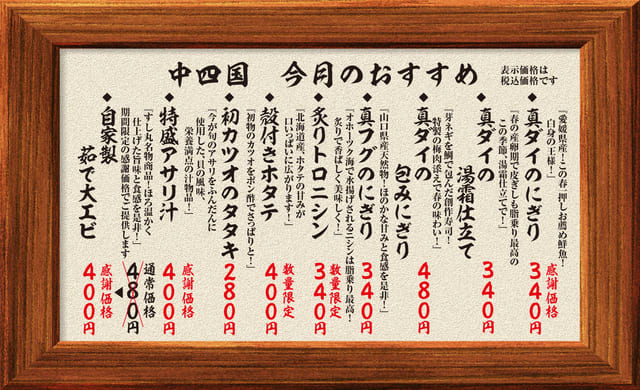 中四国 今月のおすすめ
表示価格は
税込価格です
『愛媛県産!この春一押しお薦め鮮魚!
白身の王様!』
◆真ダイのにぎり
感謝価格
340円
『春の産卵期で皮ぎしも脂乗り最高の
この季節、湯霜仕立てで!』
◆真ダイの
湯霜仕立て
340円
『芽ネギを鯛で包んだ創作寿司!
特製の梅肉添えで春の味わい!』
◆真ダイの
包みにぎり
480円
『山口県産天然物!ほのかな甘みと食感を是非!』
◆真フグのにぎり
340円
『オホーツク海で水揚げされるニシンは脂乗り最高!
炙りで香ばしく美味しく!』
◆炙りトロニシン
数量限定
340円
『北海道産、ホタテの甘みが
口いっぱいに広がります!』
◆殻付きホタテ
数量限定
400円
『初物のカツオをポン酢でさっぱりと!』
◆初カツオのタタキ
280円
『今が旬のアサリをふんだんに
使用した、貝の風味、
栄養満点の汁物品!』
◆特盛アサリ汁
感謝価格
400円
『すし丸名物商品!ほろ温かく
仕上げた旨味と食感を是非!』
期間限定の感謝価格でご提供します
◆自家製
茹で大エビ
通常価格
480円
▼
感謝価格
400円